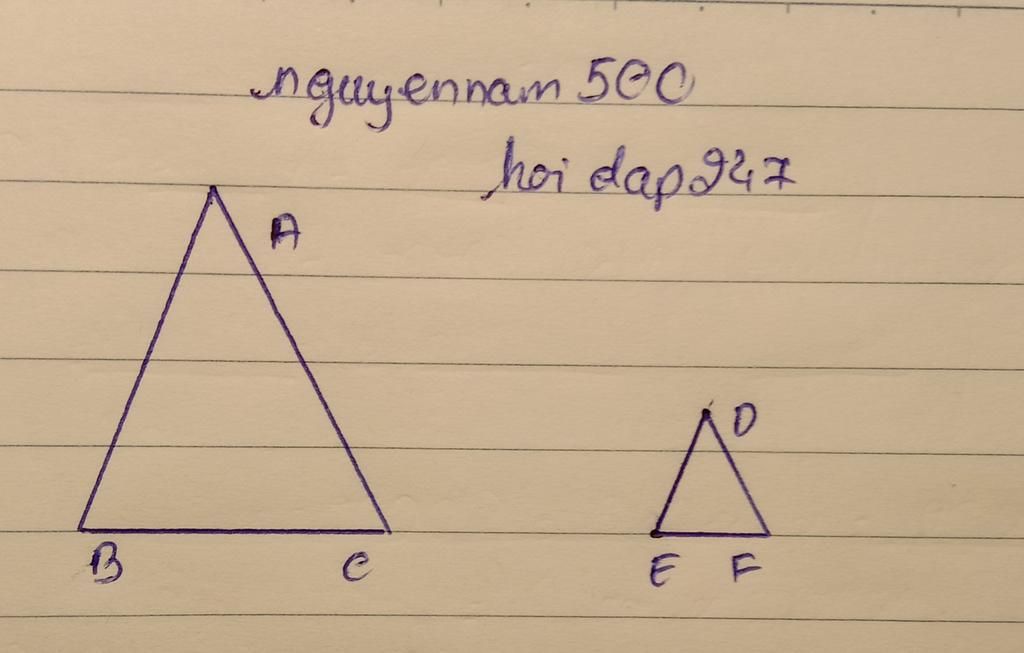 nguyennam 500
hoi dap 247
A
D
B C
E F